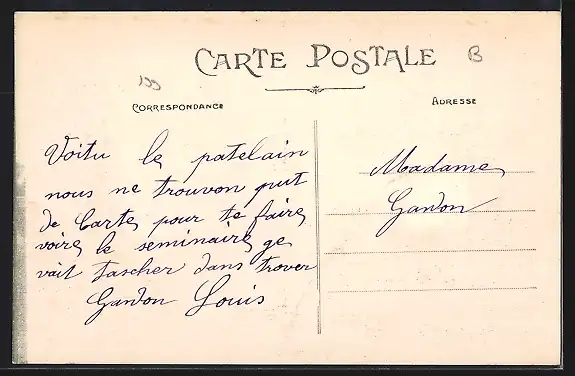 CARTE POSTALE
B
199
CORRESPONDANCE
ADRESSE
Voitu le patelain
nous ne trouvon put
de Carte pour te faire
voire le seminaire ge
vait tascher dans trover
Gandon Louis
Madame
Gandon